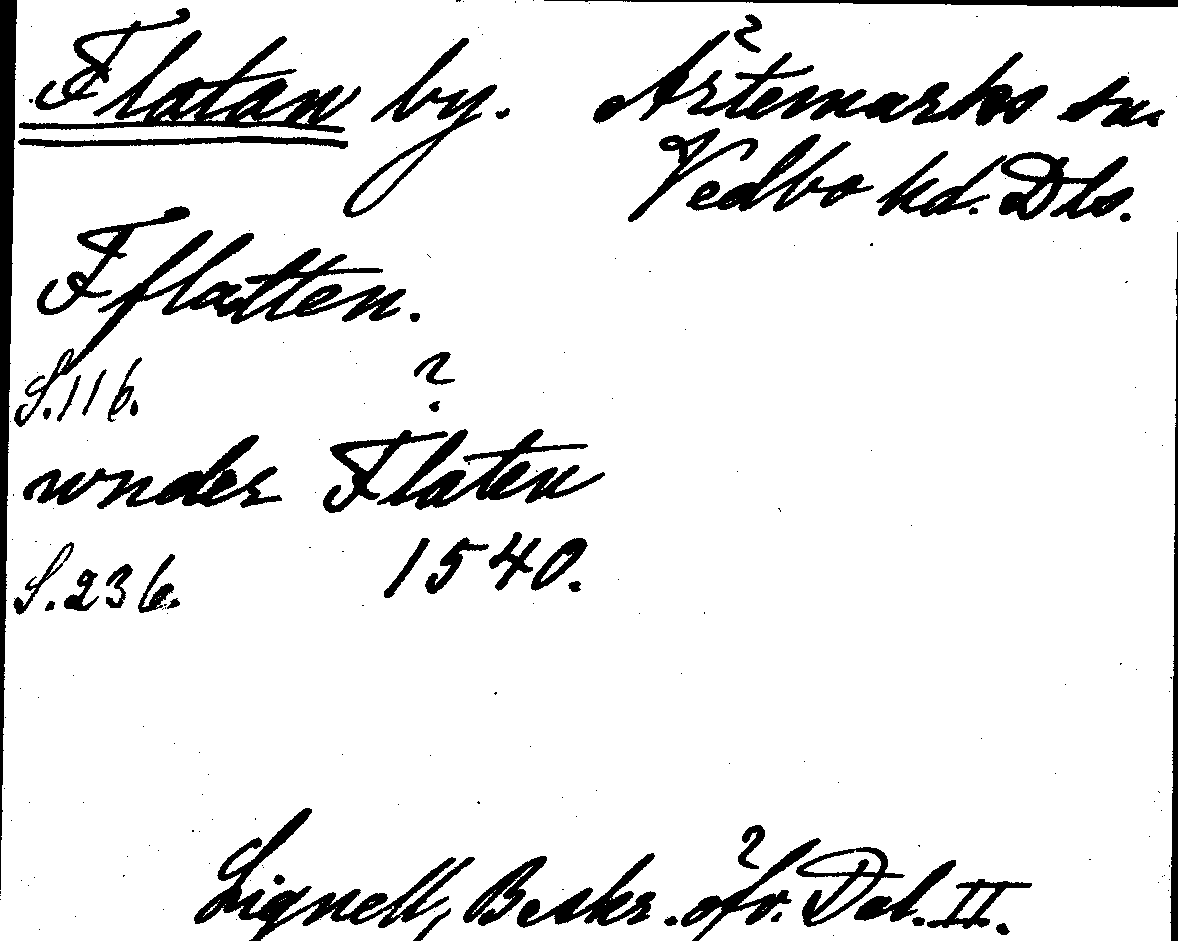 Flatan by. Ärtemarks sn.
Vedbo hd. Dls.
Fflatten.
S. 116. ?
wnder Flaten
S. 236. 1540.
Lignell, Beskr. öfv. Dal. II.